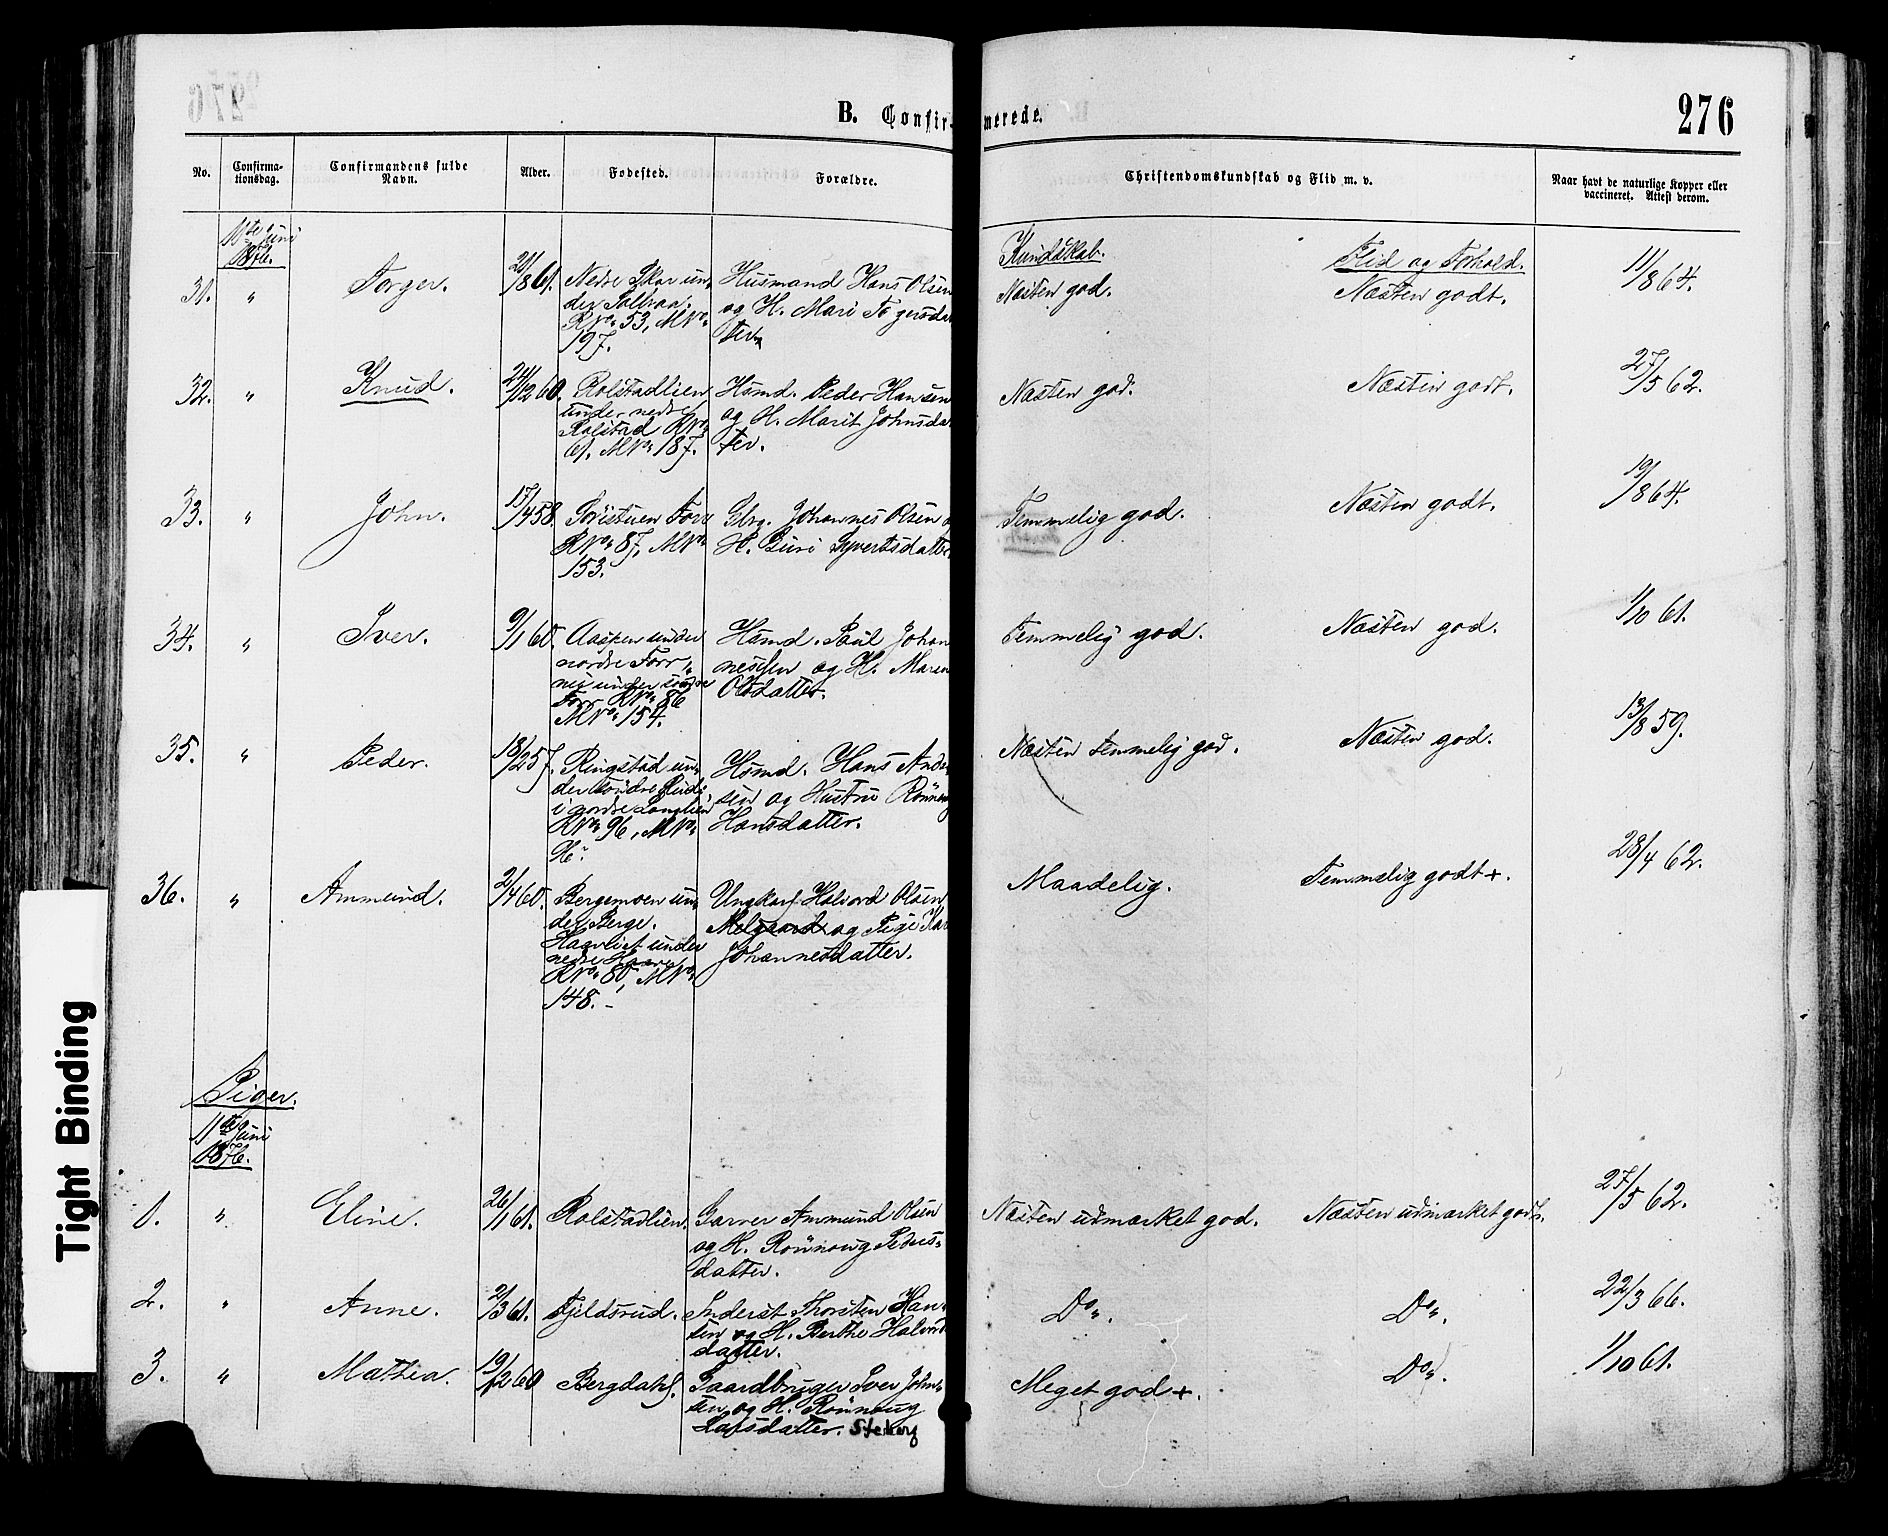 B. Confir-
merede.
276
No.
Confirma-
tionsdag.
Confirmandens fulde
Navn.
Alder.
Fødested.
Forældre.
Christendomskundskab og Flid m. v.
Naar havt de naturlige Kopper eller
vaccineret. Attest derom.
11te Juni
1876.
Kundskab.
Flid og Forhold.
31. " Torger. 21/8 61. Nedre Skar un-
der Solbraa.
R No. 53, M No.
197.
Husmand Hans Olsen
og H. Mari Torgersdat
ter
Næsten god. Næsten godt. 11/8 64.
32. " Knud. 24/12 60. Rolstadlien
under nedre
Rolstad R No.
61. M No. 187.
Husmd. Peder Hansen
og H. Marit Johnsda
ter.
Næsten god. Næsten godt. 27/5 62.
33. " John. 17/4 58. Toristuen Forr
R No. 87, M No.
153.
Gbrg. Johannes Olsen o
H. Guri Syvertsdatter
Temmelig god. Næsten godt. 19/8 64.
34. " Iver. 9/1 60. Aasen under
nordre Forr,
nu under søndre
Forr R No. 86
M No. 154.
Husmd. Paul Johan
nessen og H. Maren
Olsdatter.
Temmelig god. Næsten god. 1/10 61.
35. " Peder. 18/2 57. Ringstad un-
der søndre Ruds
i nordre Langlien
R No. 96, M No.
Husmd. Hans Ander
sen og Hustru Rønnoug
Hansdatter.
Næsten temmelig god. Næsten god. 13/8 59.
36. " Ammund. 2/4 60. Bergemoen un-
der Berge.
under
nedre
R No. 80, M No.
148.
Ungkarl Halvord Olsen
Melgaard og Pige Kar
Johannesdatter.
Maadelig. Temmelig godt +. 28/4 62.
Piger.
11te Juni
1876.
1. " Eline. 26/1 61. Rolstadlien. Garver Ammund Olsen
og H. Rønnoug Peders-
datter.
Næsten udmærket god. Næsten udmærket godt. 27/5 62.
2. " Anne. 2/3 61. Fjeldsrud. Inderst Thorsten Han-
sen og H. Berthe Halvords
datter.
Do. Do. 22/3 66.
3. " Mathea. 19/12 60 Bergdahl. Gaardbruger Iver John-
sen og H. Rønnoug
Larsdatter. Steberg
Meget god +. Do. 1/10 61.
Tight Binding